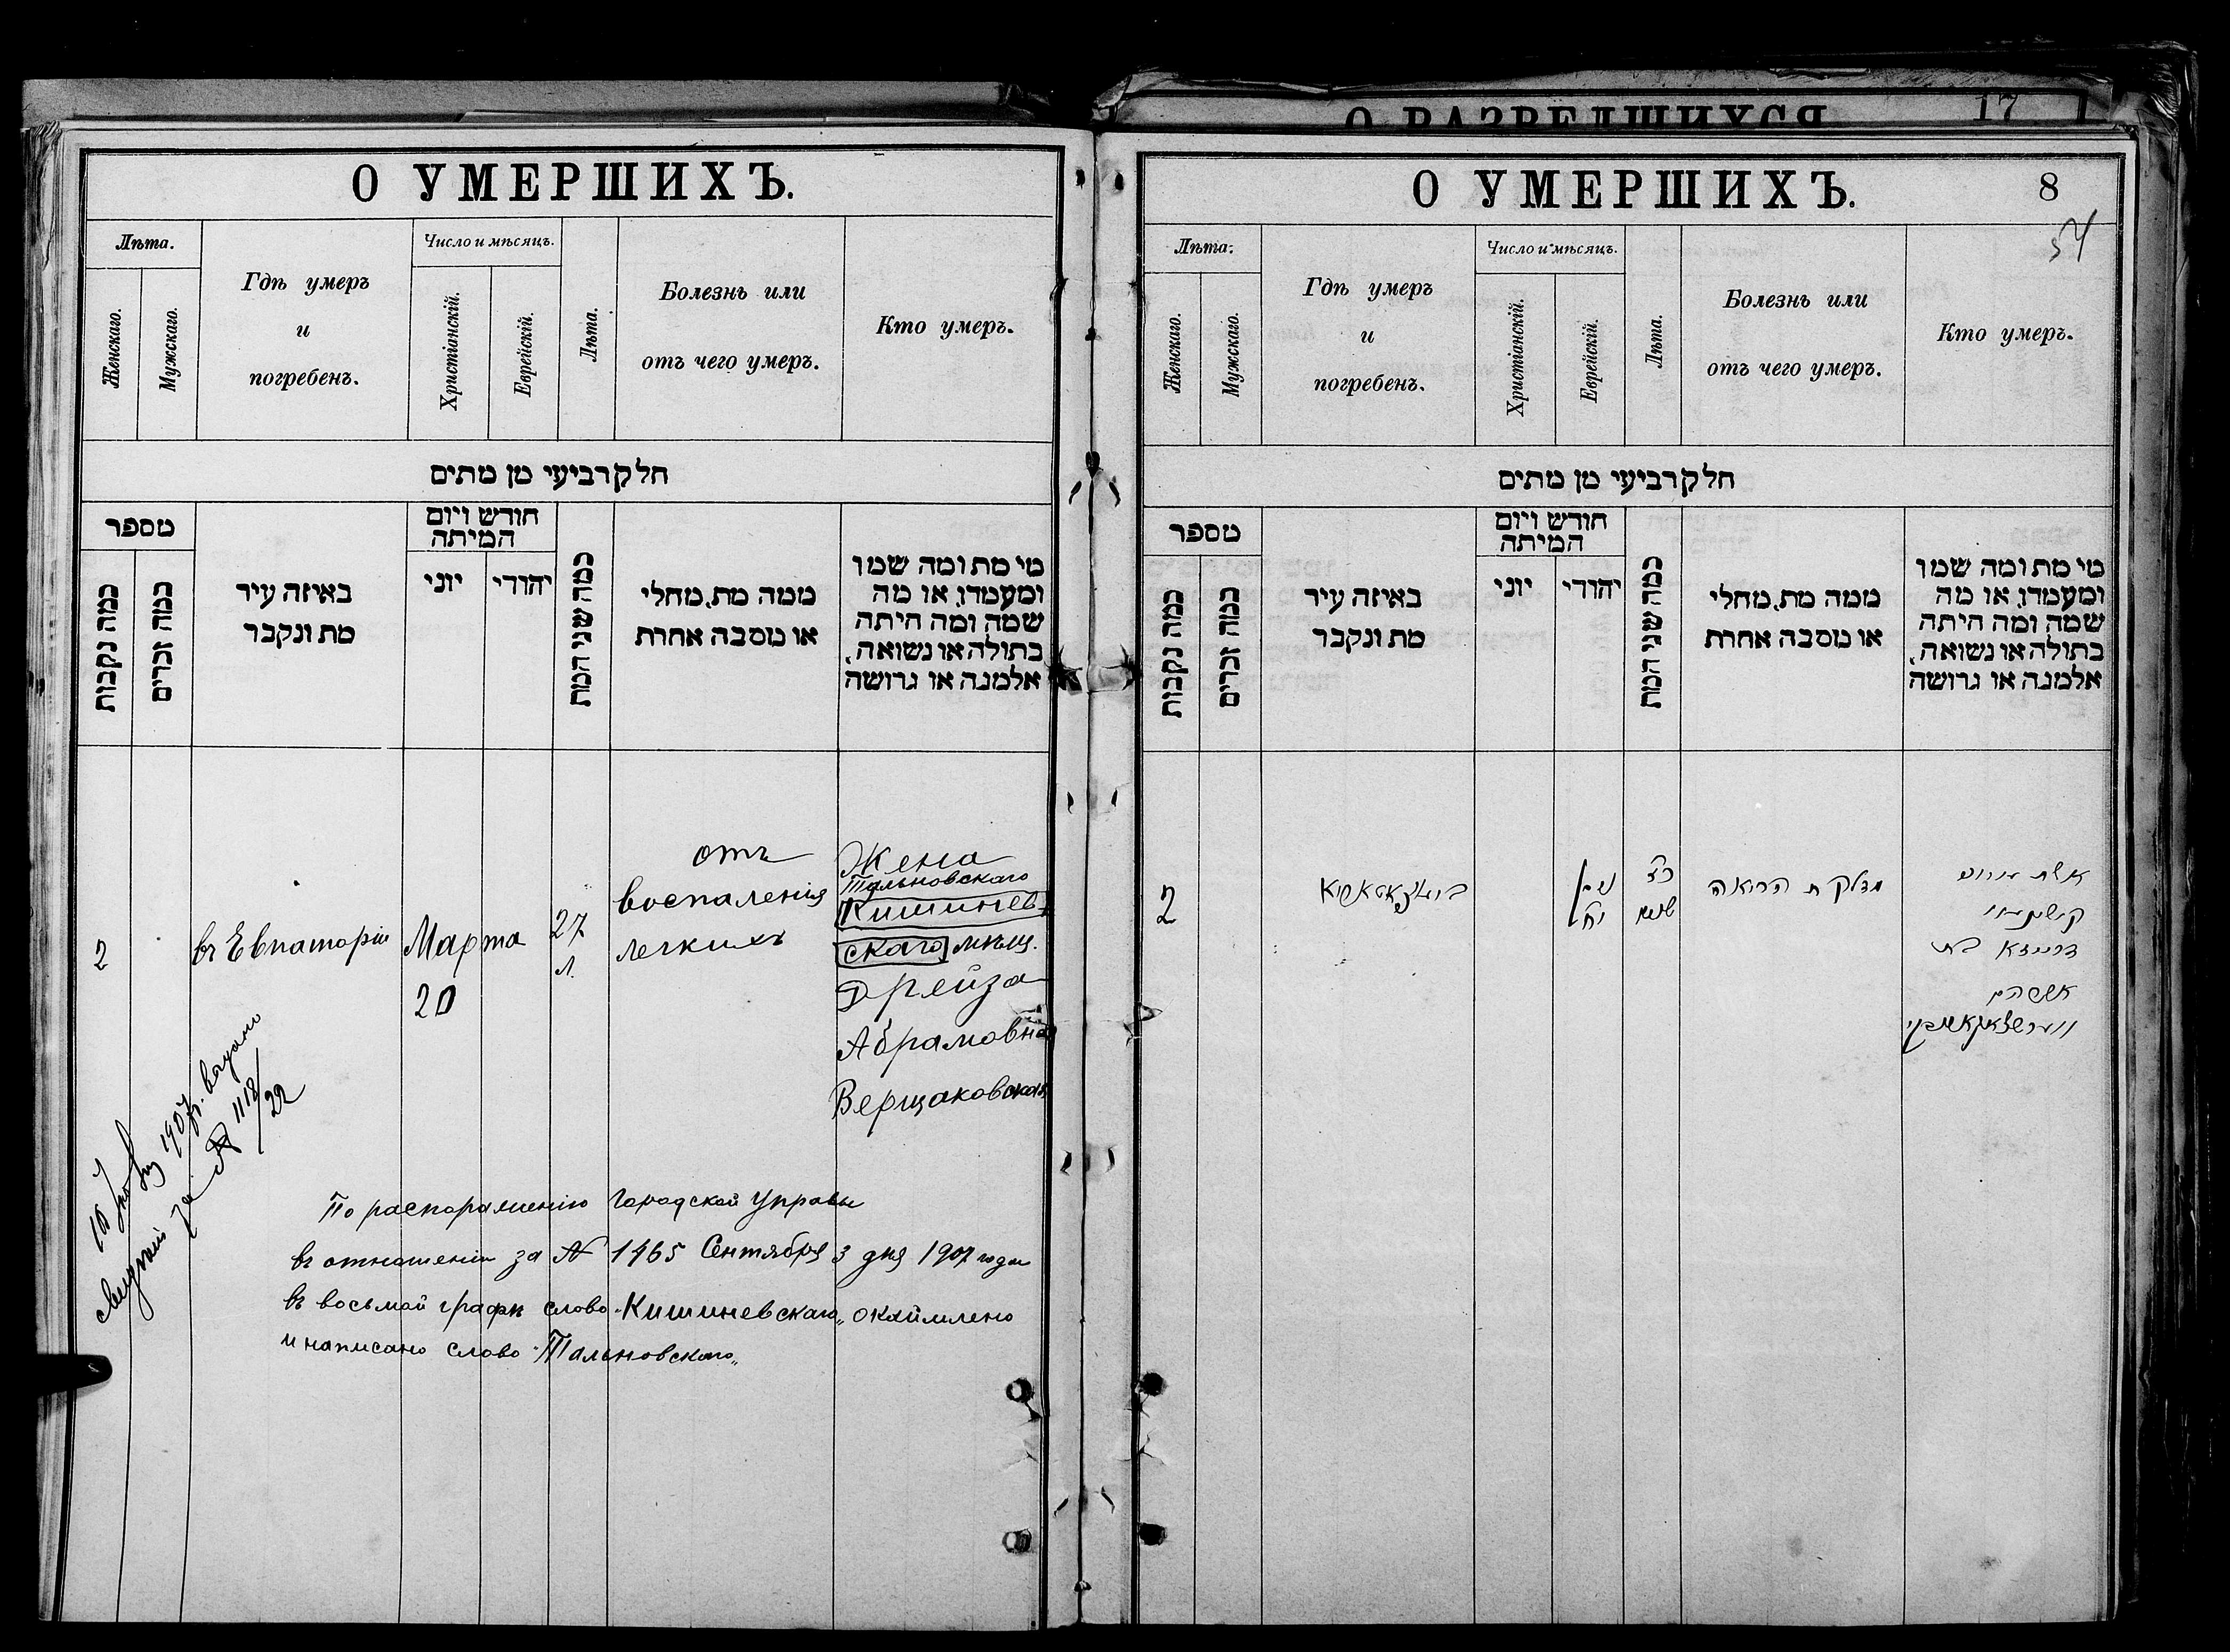 О УМЕРШИХЪ.
Лѣта.
Женскаго.
Мужскаго.
Гдѣ умеръ
и
погребенъ.
Число и мѣсяцъ.
Христіанскій.
Еврейскій.
Лѣта.
Болезнь или
отъ чего умеръ.
Кто умеръ.
חלק רביעי מן מתים
מספר
כמה נקבות
כמה זכרים
באיזה עיר
מת ונקבר
חודש ויום
המיתה
יוני
יהודי
כמה שני המת
ממה מת, מחלי
או מסבה אחרת
מי מת ומה שמו
ומעמדו, או מה
שמה ומה היתה
בתולה או נשואה,
אלמנה או גרושה
2
въ Евпаторіи
Марта
20
27
л.
отъ
воспаленія
легкихъ
Жена
Тальновскаго
Кишинев-
скаго мѣщ.
Дрейза
Абрамовна
Верщаковская
1907 г.
за № 1118/22
По распоряженію Городской Управы
въ отношеніи за № 1465 Сентября 3 дня 1907 года
въ восьмой графѣ слово „Кишиневскаго„ окаймлено
и написано слово „Тальновскаго„
О РАЗВЕДШИХСЯ
17
О УМЕРШИХЪ.
8
54
Лѣта.
Женскаго.
Мужскаго.
Гдѣ умеръ
и
погребенъ.
Число и мѣсяцъ.
Христіанскій.
Еврейскій.
Лѣта.
Болезнь или
отъ чего умеръ.
Кто умеръ.
חלק רביעי מן מתים
מספר
כמה נקבות
כמה זכרים
באיזה עיר
מת ונקבר
חודש ויום
המיתה
יוני
יהודי
כמה שני המת
ממה מת, מחלי
או מסבה אחרת
מי מת ומה שמו
ומעמדו, או מה
שמה ומה היתה
בתולה או נשואה,
אלמנה או גרושה
2
ניסן
כז
מדלקת הריאה
אשת
דרייזא בת
אברהם